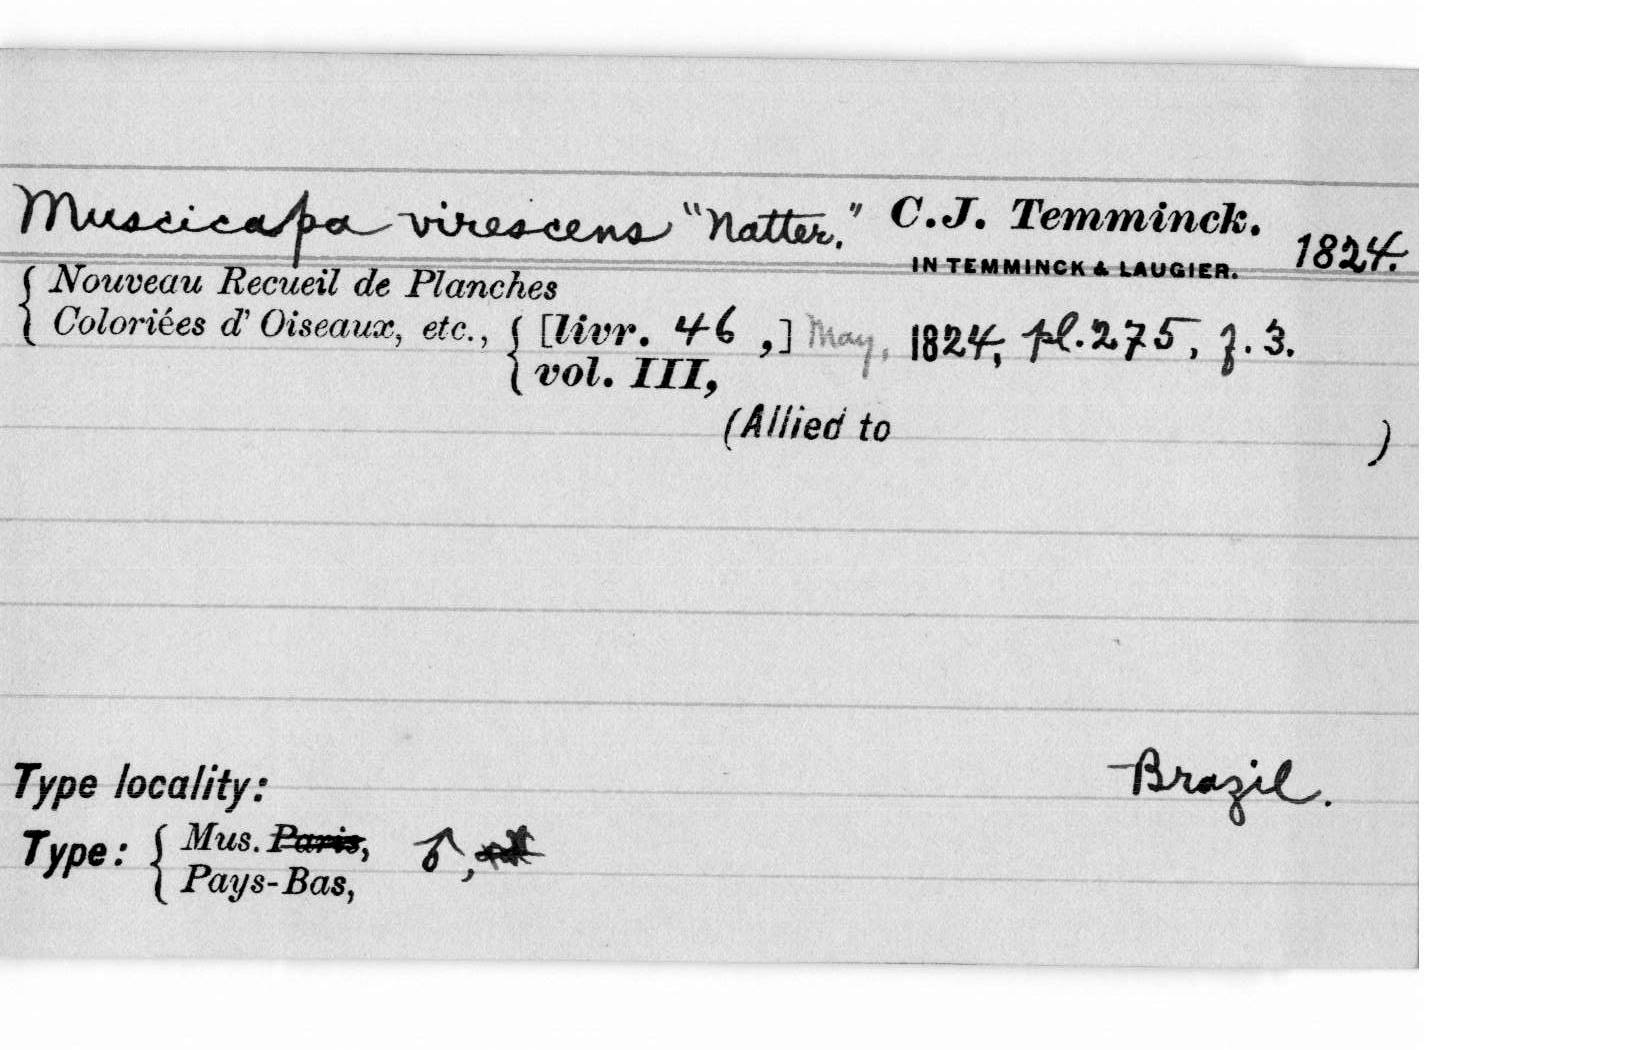 Muscicapa virescens "Natter." C.J. Temminck. 1824.
IN TEMMINCK & LAUGIER.
{ Nouveau Recueil de Planches
Coloriées d' Oiseaux, etc., { [livr. 46 ,] May, 1824, pl. 275, f. 3.
vol. III,
(Allied to )
Type locality: Brazil.
Type: { Mus. Paris, ♂,
Pays-Bas,